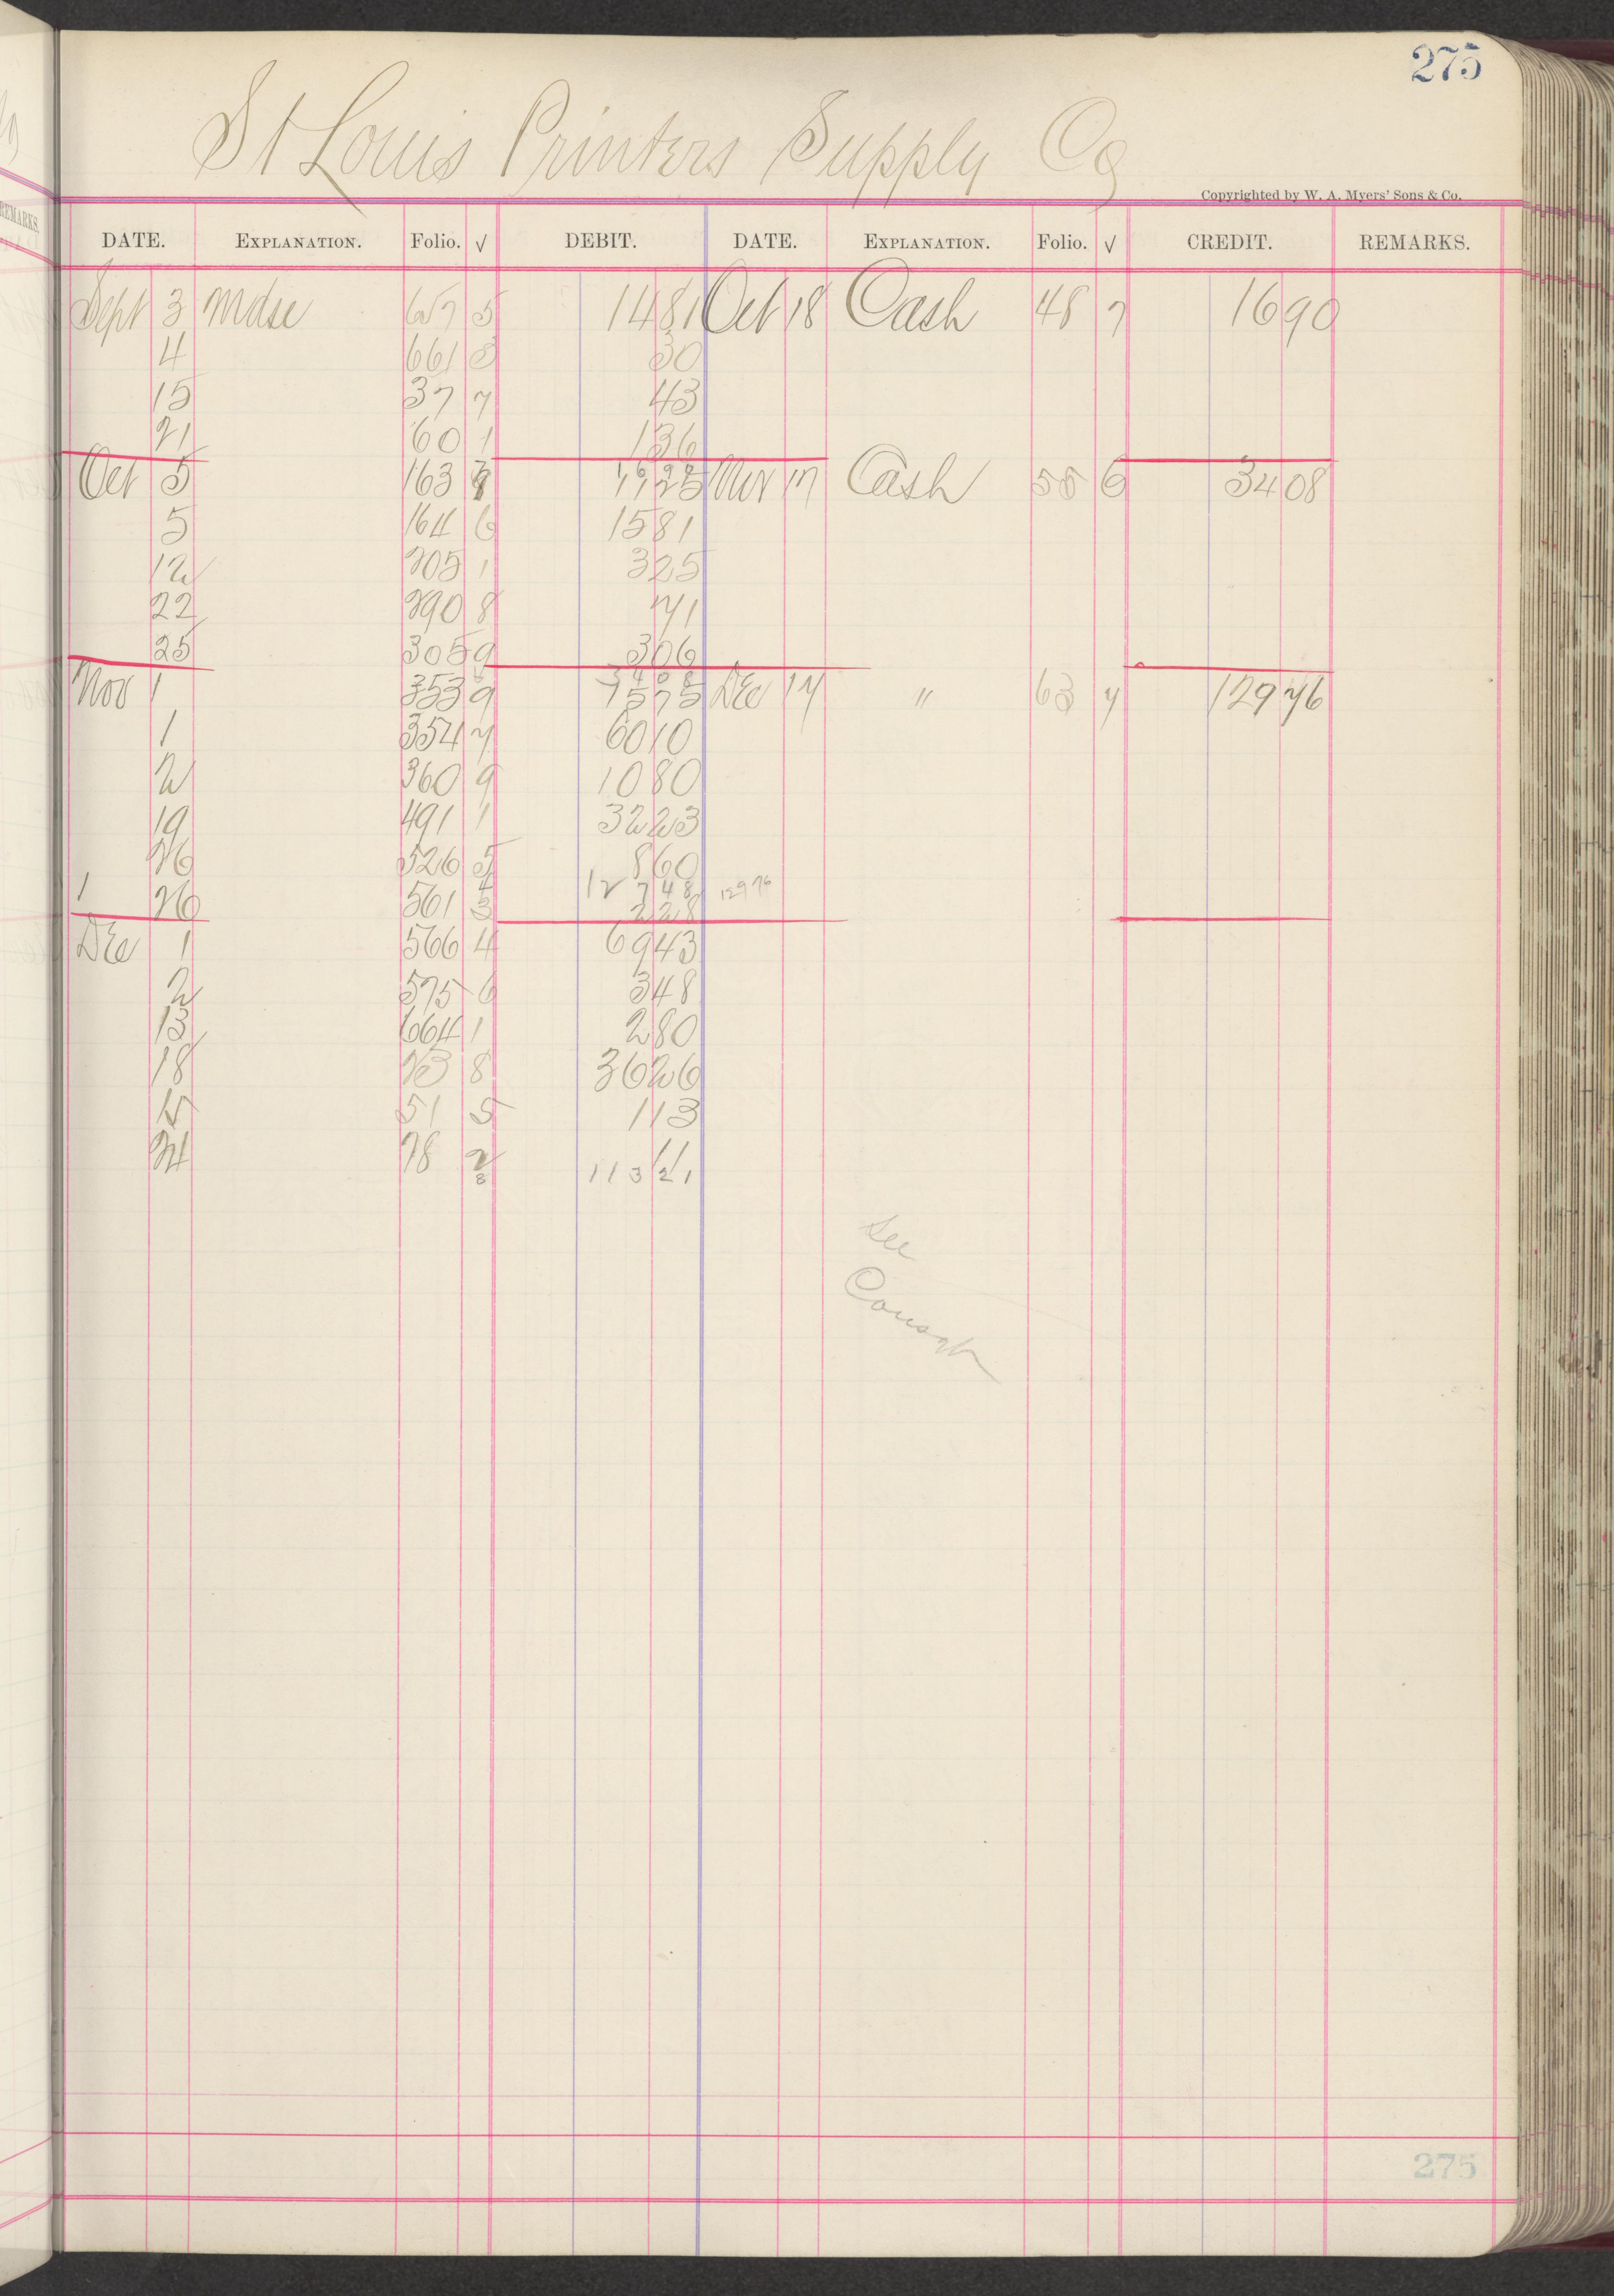 275
St Louis Printers Supply Co
Copyrighted by W. A. Myers' Sons & Co.
REMARKS.
DATE. EXPLANATION. Folio. √ DEBIT. DATE. EXPLANATION. Folio. √ CREDIT. REMARKS.
Sept 3 Mdse 657 5 14 81 Oct 18 Cash 48 7 16 90
4 661 3 30
15 37 7 43
21 60 1 1 36
16 90
Oct 5 163 11 25 Nov 17 Cash 55 6 34 08
5 164 6 15 81
12 205 1 3 25
22 290 8 71
25 305 9 3 06
34 08
Nov 1 353 9 15 75 Dec 17 " 63 7 129 76
1 354 7 60 10
2 360 9 10 80
19 491 1 32 23
26 526 5 8 60
12 7 48 129 76
1 26 561 3 2 28
Dec 1 566 4 69 43
2 575 6 3 48
13 664 1 2 80
18 23 8 36 26
15 51 5 1 13
24 78 2 11
8 113 21
See
Consgt
275